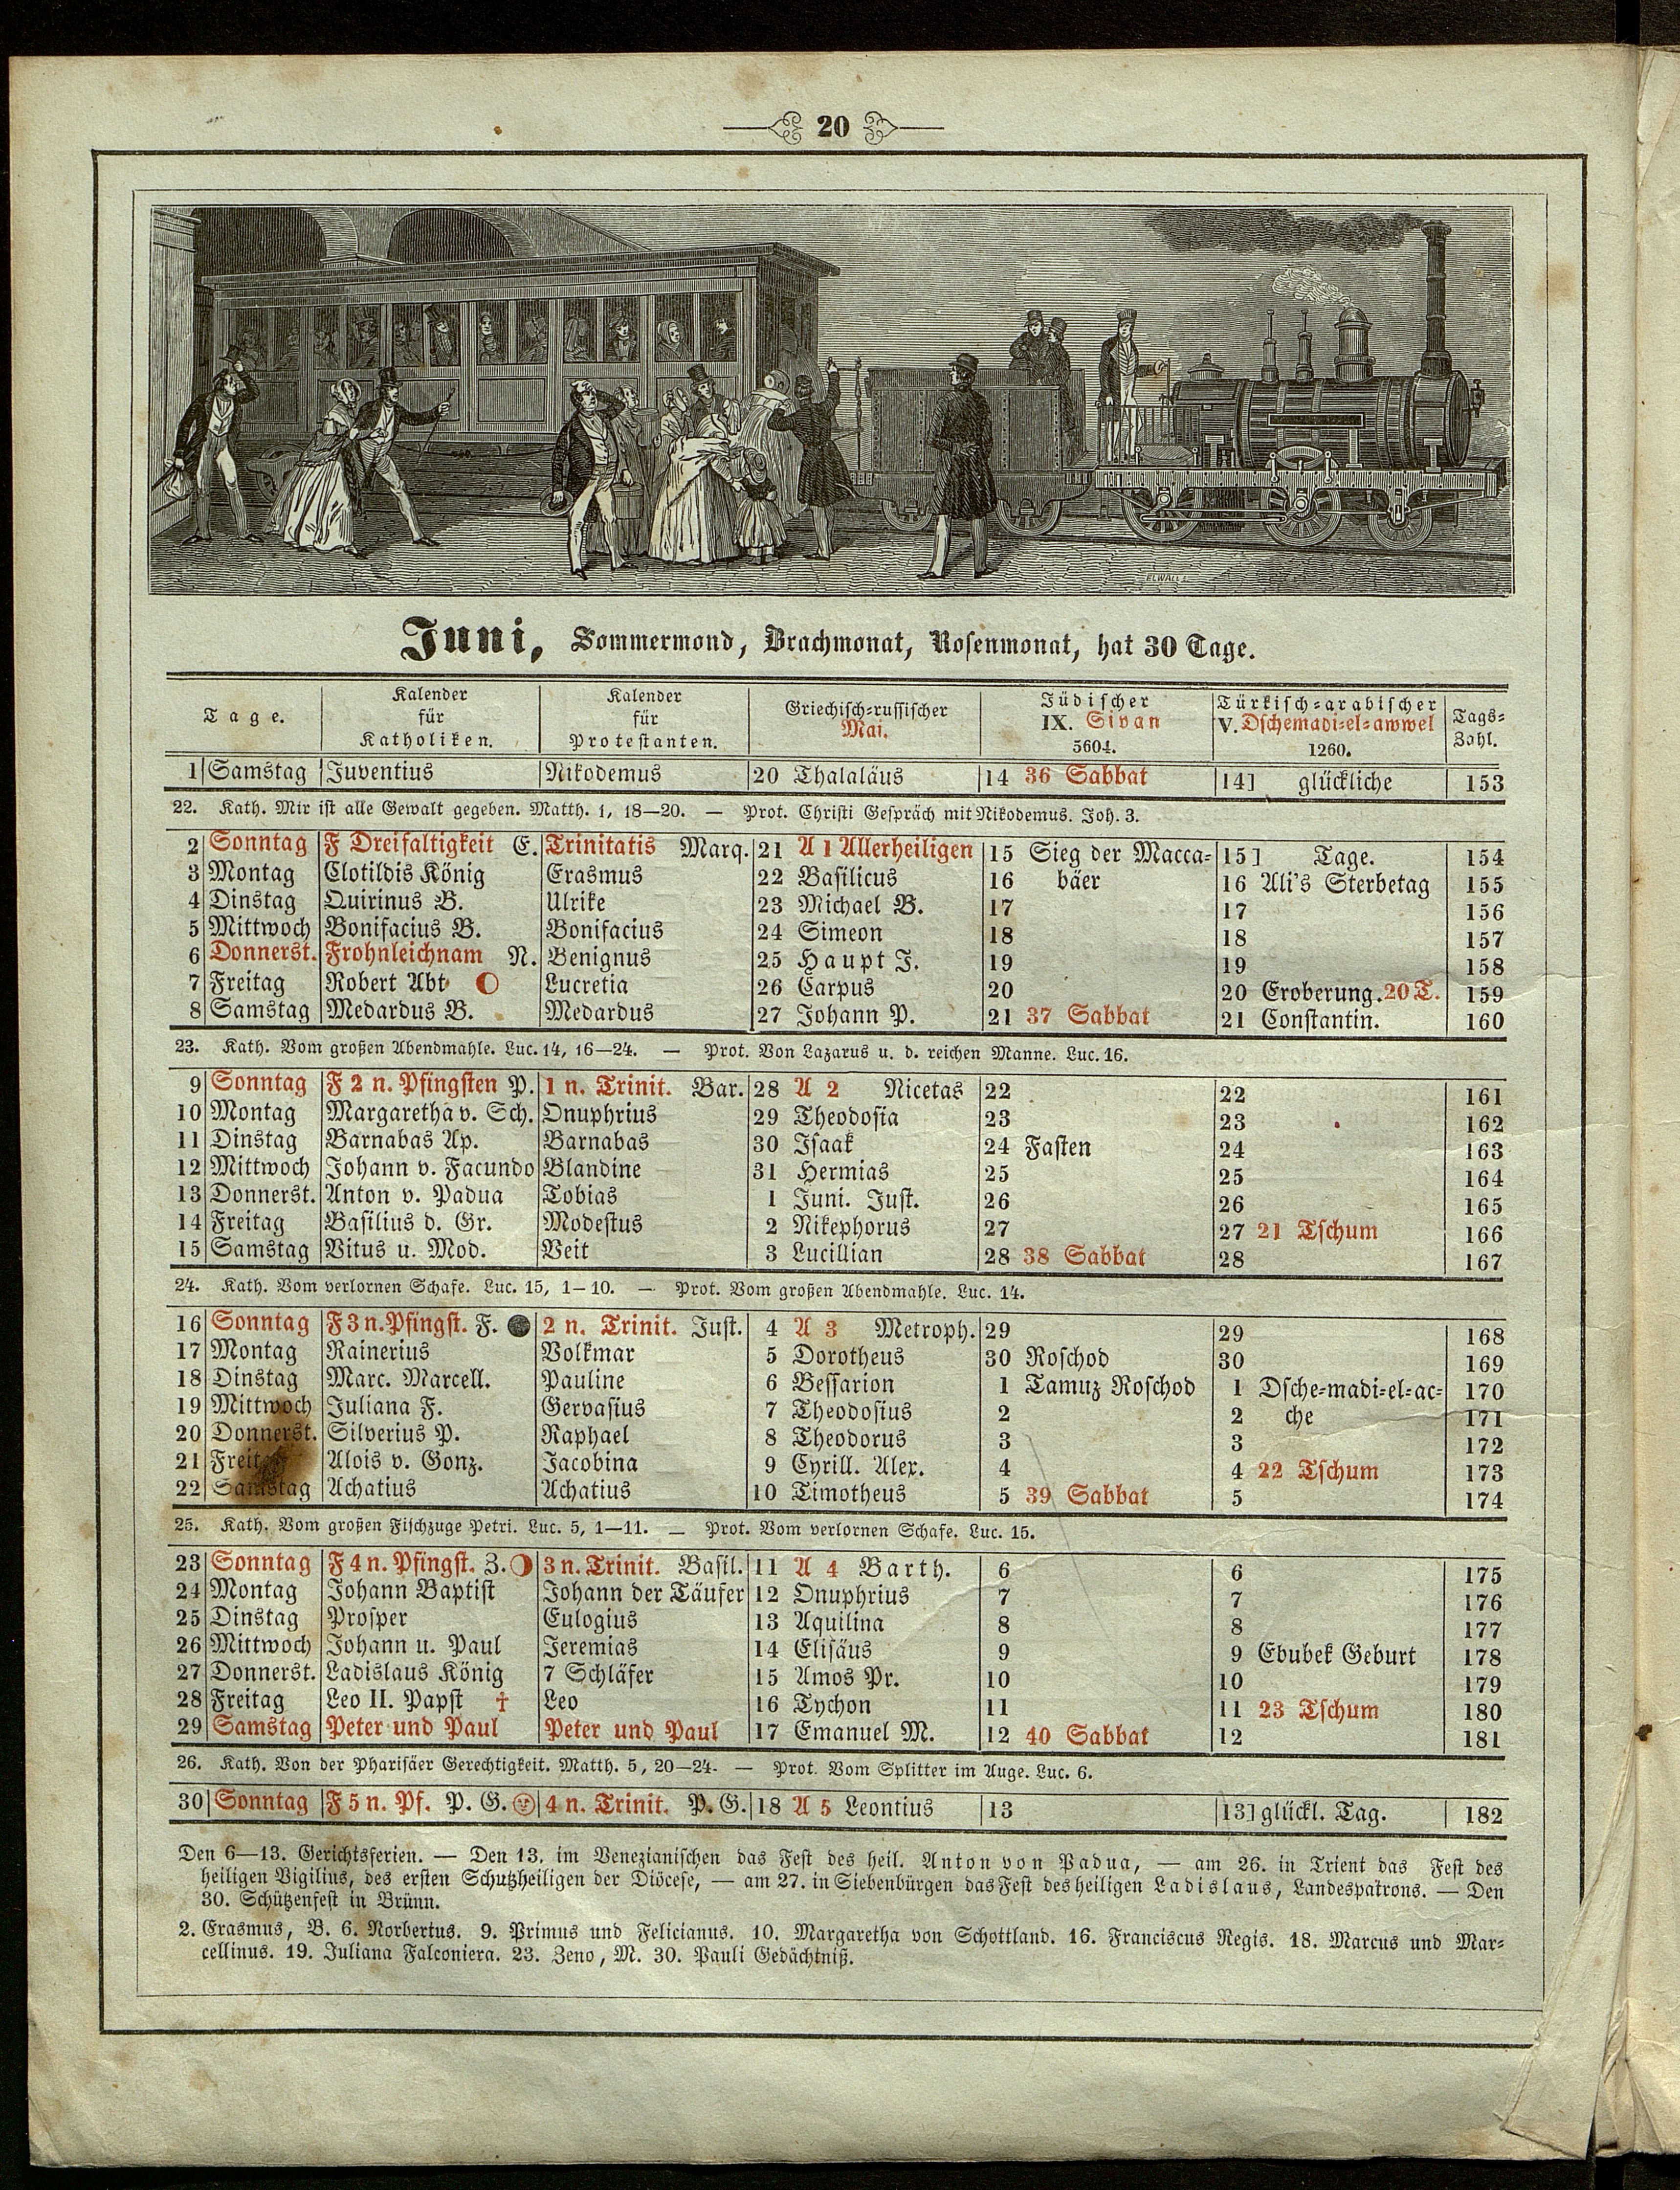 20
ELWALL
Juni, Sommermond, Brachmonat, Rosenmonat, hat 30 Tage.
Tage. | Kalender für Katholiken. | Kalender für Protestanten. | Griechisch=russischer Mai. | Jüdischer IX. Sivan 5604. | Türkisch=arabischer V. Dschemadi=el=awwel 1260. | Tags=Zahl.
1 Samstag | Juventius | Nikodemus | 20 Thalaläus | 14 36 Sabbat | 14] glückliche | 153
22. Kath. Mir ist alle Gewalt gegeben. Matth. 1, 18—20. — Prot. Christi Gespräch mit Nikodemus. Joh. 3.
2 Sonntag | F Dreifaltigkeit E. | Trinitatis Marq. | 21 A 1 Allerheiligen | 15 Sieg der Macca= | 15] Tage. | 154
3 Montag | Clotildis König | Erasmus | 22 Basilicus | 16 bäer | 16 Ali's Sterbetag | 155
4 Dinstag | Quirinus B. | Ulrike | 23 Michael B. | 17 | 17 | 156
5 Mittwoch | Bonifacius B. | Bonifacius | 24 Simeon | 18 | 18 | 157
6 Donnerst. | Frohnleichnam N. | Benignus | 25 Haupt J. | 19 | 19 | 158
7 Freitag | Robert Abt | Lucretia | 26 Carpus | 20 | 20 Eroberung. 20 T. | 159
8 Samstag | Medardus B. | Medardus | 27 Johann P. | 21 37 Sabbat | 21 Constantin. | 160
23. Kath. Vom großen Abendmahle. Luc. 14, 16—24. — Prot. Von Lazarus u. d. reichen Manne. Luc. 16.
9 Sonntag | F 2 n. Pfingsten P. | 1 n. Trinit. Bar. | 28 A 2 Nicetas | 22 | 22 | 161
10 Montag | Margaretha v. Sch. | Onuphrius | 29 Theodosia | 23 | 23 | 162
11 Dinstag | Barnabas Ap. | Barnabas | 30 Isaak | 24 Fasten | 24 | 163
12 Mittwoch | Johann v. Facundo | Blandine | 31 Hermias | 25 | 25 | 164
13 Donnerst. | Anton v. Padua | Tobias | 1 Juni. Just. | 26 | 26 | 165
14 Freitag | Basilius d. Gr. | Modestus | 2 Nikephorus | 27 | 27 21 Tschum | 166
15 Samstag | Vitus u. Mod. | Veit | 3 Lucillian | 28 38 Sabbat | 28 | 167
24. Kath. Vom verlornen Schafe. Luc. 15, 1—10. — Prot. Vom großen Abendmahle. Luc. 14.
16 Sonntag | F 3 n. Pfingst. F. | 2 n. Trinit. Just. | 4 A 3 Metroph. | 29 | 29 | 168
17 Montag | Rainerius | Volkmar | 5 Dorotheus | 30 Roschod | 30 | 169
18 Dinstag | Marc. Marcell. | Pauline | 6 Bessarion | 1 Tamuz Roschod | 1 Dsche=madi=el=ac= | 170
19 Mittwoch | Juliana F. | Gervasius | 7 Theodosius | 2 | 2 che | 171
20 Donnerst. | Silverius P. | Raphael | 8 Theodorus | 3 | 3 | 172
21 Freitag | Alois v. Gonz. | Jacobina | 9 Cyrill. Alex. | 4 | 4 22 Tschum | 173
22 Samstag | Achatius | Achatius | 10 Timotheus | 5 39 Sabbat | 5 | 174
25. Kath. Vom großen Fischzuge Petri. Luc. 5, 1—11. — Prot. Vom verlornen Schafe. Luc. 15.
23 Sonntag | F 4 n. Pfingst. Z. | 3 n. Trinit. Basil. | 11 A 4 Barth. | 6 | 6 | 175
24 Montag | Johann Baptist | Johann der Täufer | 12 Onuphrius | 7 | 7 | 176
25 Dinstag | Prosper | Eulogius | 13 Aquilina | 8 | 8 | 177
26 Mittwoch | Johann u. Paul | Jeremias | 14 Elisäus | 9 | 9 Ebubek Geburt | 178
27 Donnerst. | Ladislaus König | 7 Schläfer | 15 Amos Pr. | 10 | 10 | 179
28 Freitag | Leo II. Papst † | Leo | 16 Tychon | 11 | 11 23 Tschum | 180
29 Samstag | Peter und Paul | Peter und Paul | 17 Emanuel M. | 12 40 Sabbat | 12 | 181
26. Kath. Von der Pharisäer Gerechtigkeit. Matth. 5, 20—24. — Prot. Vom Splitter im Auge. Luc. 6.
30 Sonntag | F 5 n. Pf. P. G. | 4 n. Trinit. P. G. | 18 A 5 Leontius | 13 | 13] glückl. Tag. | 182
Den 6—13. Gerichtsferien. — Den 13. im Venezianischen das Fest des heil. Anton von Padua, — am 26. in Trient das Fest des
heiligen Vigilius, des ersten Schutzheiligen der Diöcese, — am 27. in Siebenbürgen das Fest des heiligen Ladislaus, Landespatrons. — Den
30. Schützenfest in Brünn.
2. Erasmus, B. 6. Norbertus. 9. Primus und Felicianus. 10. Margaretha von Schottland. 16. Franciscus Regis. 18. Marcus und Mar=
cellinus. 19. Juliana Falconiera. 23. Zeno, M. 30. Pauli Gedächtniß.